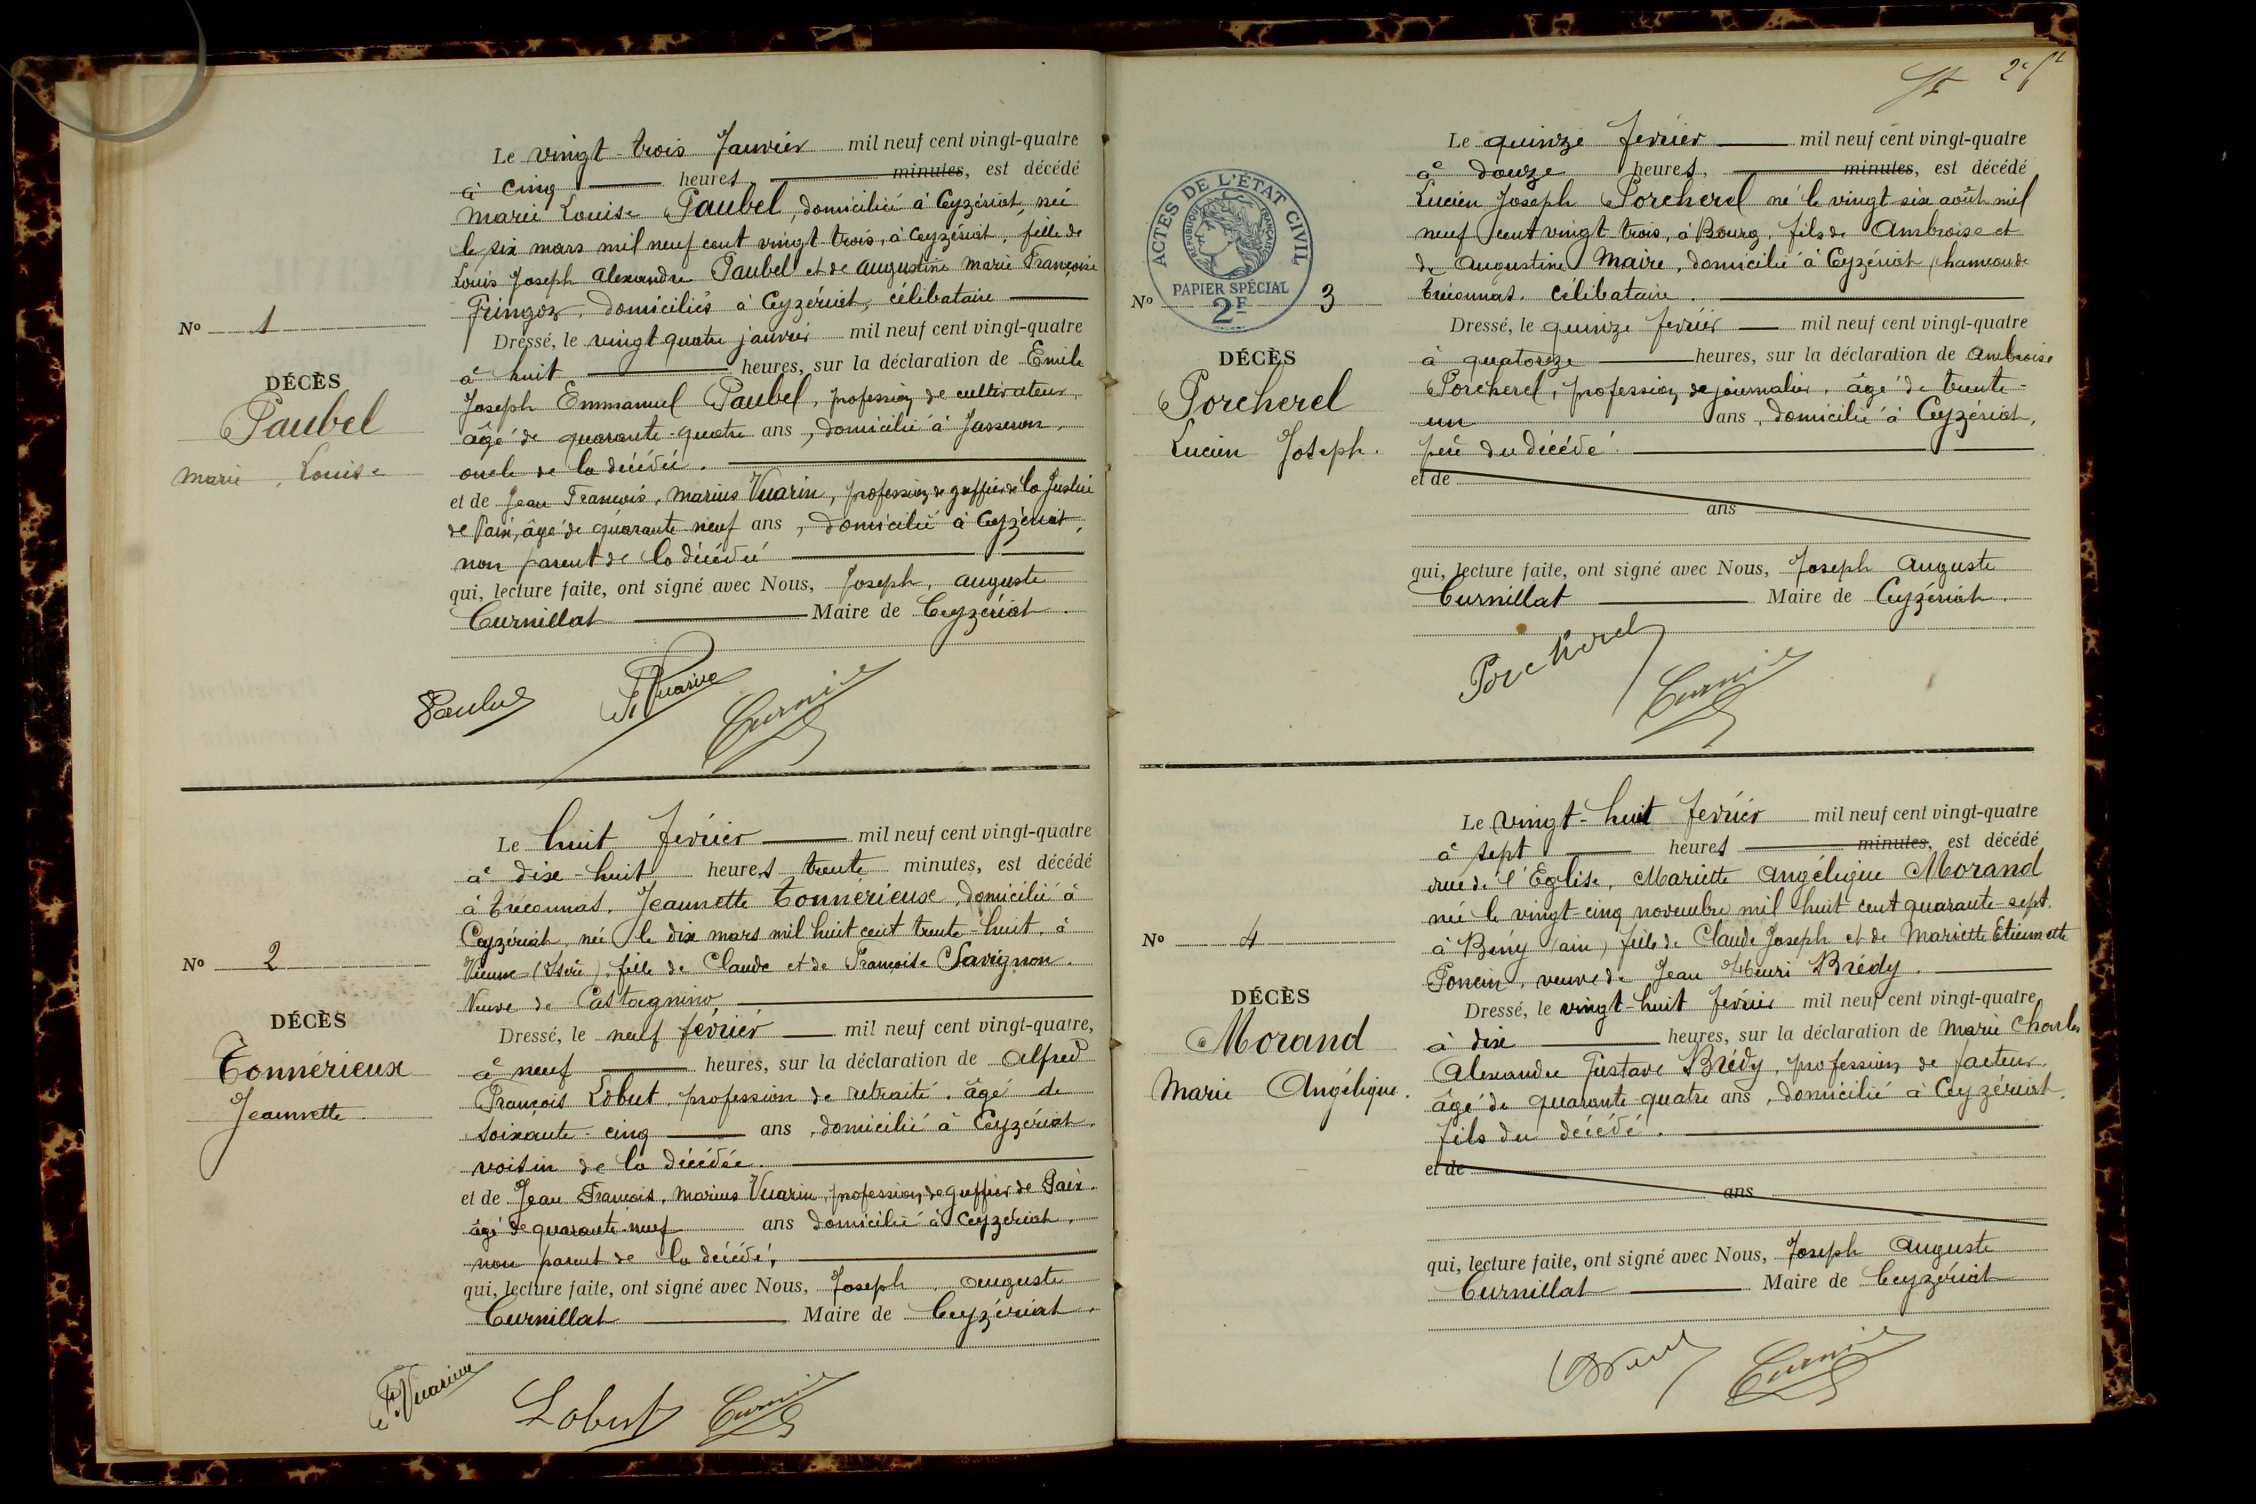 Le vingt-trois Janvier mil neuf cent vingt-quatre
à cinq heures, minutes, est décédé
Marie Louise Paubel, domiciliée à Ceyzériat, née
le six mars mil neuf cent vingt trois, à Ceyzériat, fille de
Louis Joseph Alexandre Paubel et de Augustine Marie Françoise
Fringoz, domiciliés à Ceyzériat, célibataire
Nº 1
Dressé, le vingt quatre janvier mil neuf cent vingt-quatre
à huit heures, sur la déclaration de Emile
DÉCÈS
Joseph Emmanuel Paubel, profession de cultivateur,
Paubel
âgé de quarante-quatre ans, domicilié à Jasseron,
Marie, Louise
oncle de la décédée.
et de Jean François, Marius Vuarin, profession de greffier de la Justice
de Paix, âgé de quarante neuf ans, domicilié à Ceyzériat,
non parent de la décédée
qui, lecture faite, ont signé avec Nous, Joseph, Auguste
Curnillat Maire de Ceyzériat.
Paubel F. Vuarin Curnil
Le huit février mil neuf cent vingt-quatre
à dix-huit heures trente minutes, est décédé
à Tréconnas, Jeannette Tonnérieux, domiciliée à
Ceyzériat, née le dix mars mil huit cent trente-huit, à
Vienne (Isère), fille de Claude et de Françoise Savignon.
Veuve de Castagnino
Nº 2
DÉCÈS
Dressé, le neuf février mil neuf cent vingt-quatre,
à neuf heures, sur la déclaration de Alfred
Tonnérieux
François Lobut, profession de retraité, âgé de
Jeannette
soixante-cinq ans, domicilié à Ceyzériat,
voisin de la décédée.
et de Jean François, Marius Vuarin, profession de greffier de Paix.
âgé de quarante-neuf ans domicilié à Ceyzériat,
non parent de la décédé,
qui, lecture faite, ont signé avec Nous, Joseph, Auguste
Curnillat Maire de Ceyzériat.
F. Vuarin Lobut Curnil
2e
Le quinze février mil neuf cent vingt-quatre
à douze heures, minutes, est décédé
Lucien Joseph Porcherel né le vingt six août mil
neuf cent vingt-trois, à Bourg, fils de Ambroise et
de Augustine Maire, domicilié à Ceyzériat, hameau de
Tréconnas. Célibataire.
ACTES DE L'ÉTAT CIVIL
RÉPUBLIQUE FRANÇAISE
PAPIER SPÉCIAL
2F
Nº 3
DÉCÈS
Dressé, le quinze février mil neuf cent vingt-quatre
à quatorze heures, sur la déclaration de Ambroise
Porcherel
Porcherel, profession de journalier, âgé de trente-
Lucien Joseph.
un ans, domicilié à Ceyzériat,
père du décédé.
et de
ans
qui, lecture faite, ont signé avec Nous, Joseph Auguste
Curnillat Maire de Ceyzériat.
Porcherel Curnil
Le vingt-huit février mil neuf cent vingt-quatre
à sept heures minutes, est décédé
rue de l'Eglise, Mariette Angélique Morand
née le vingt-cinq novembre mil huit cent quarante-sept.
à Bény (ain) fille de Claude Joseph et de Mariette Etiennette
Poncin, veuve de Jean Henri Brédy.
Nº 4
DÉCÈS
Dressé, le vingt-huit février mil neuf cent vingt-quatre
à dix heures, sur la déclaration de Marie Charles
Morand
Alexandre Gustave Brédy, profession de facteur,
Marie Angélique.
âgé de quarante quatre ans, domicilié à Ceyzériat.
fils du décédé.
et de
ans
qui, lecture faite, ont signé avec Nous, Joseph Auguste
Curnillat Maire de Ceyzériat
Curnil